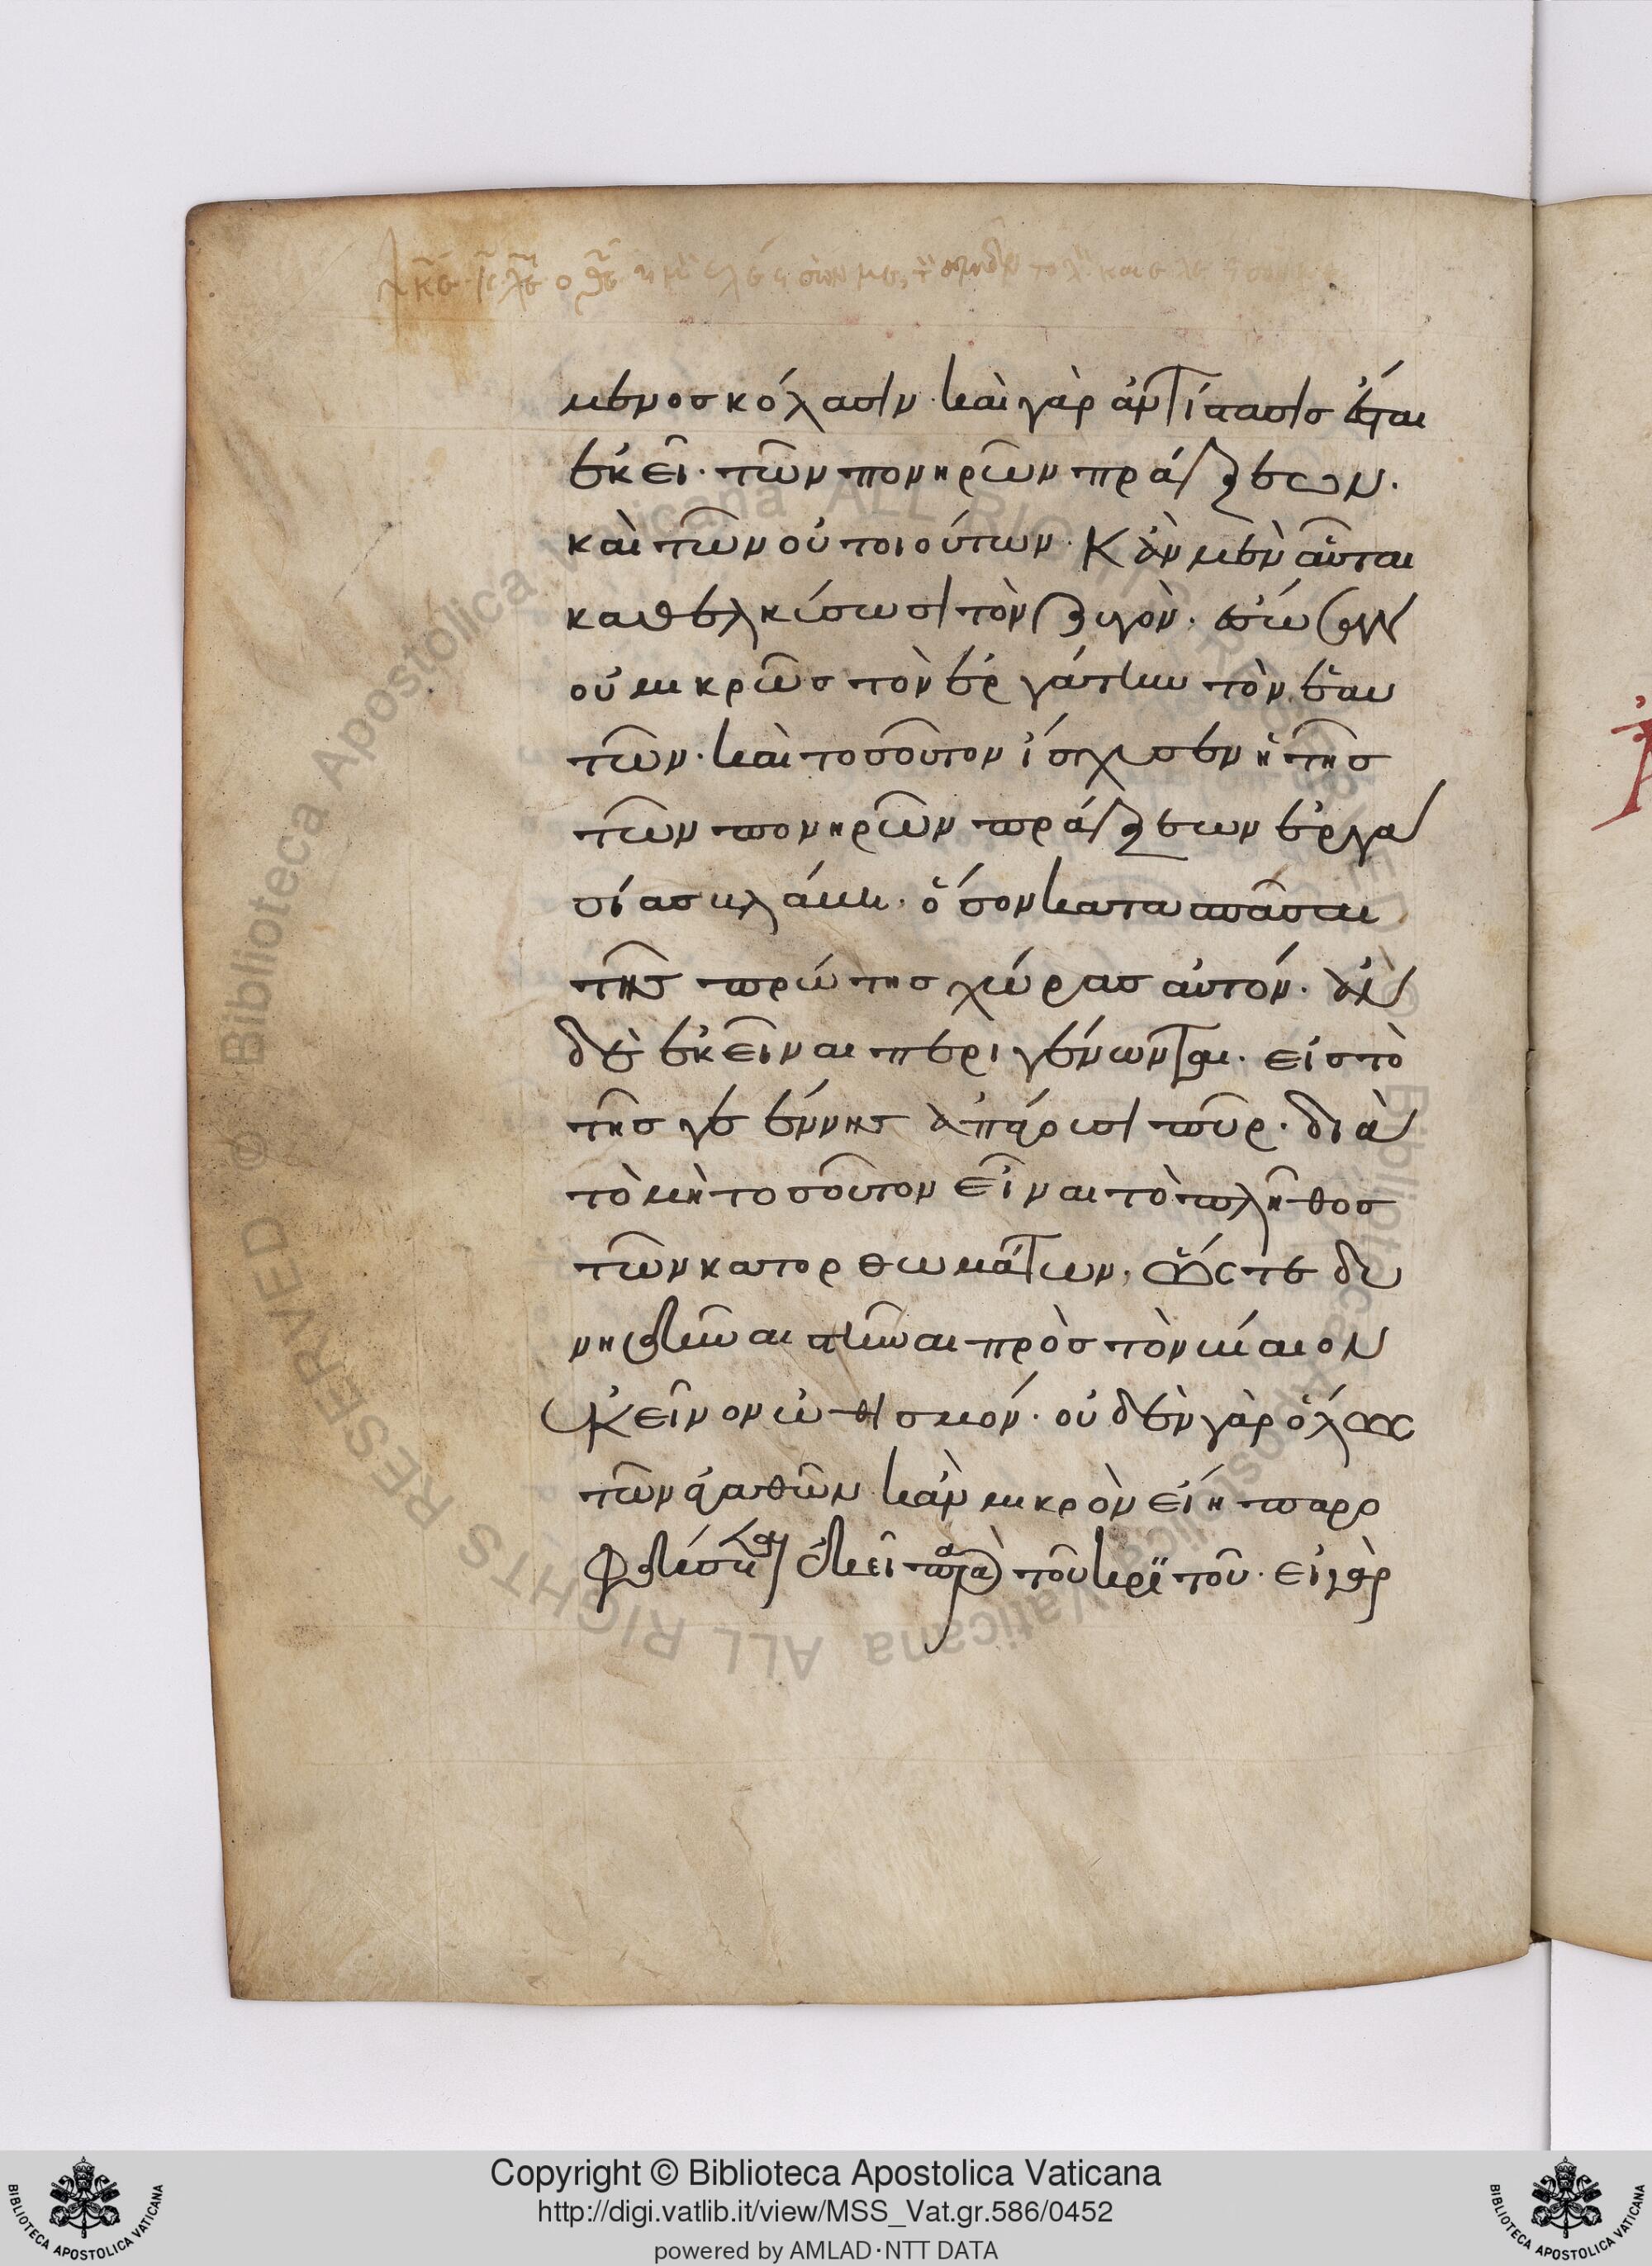 μενος κόλασιν· καὶ γὰρ ἀντίστασις ἔσται
ἐκεῖ· τῶν πονηρῶν πράξεων·
καὶ τῶν οὐ τοιούτων· Κἂν μὲν αὗται
καθελκύσωσι τὸν ζυγὸν· ἔσωσαν
οὐ μικρῶς τὸν ἐργάτην τὸν ἑαυ
τῶν· καὶ τοσοῦτον ἴσχυσεν ἡ τῆς
τῶν πονηρῶν πράξεων ἐργα
σίας βλάβη· ὅσον κατασπᾶσαι
τῆς πρώτης χώρας αὐτόν· ἂν
δὲ ἐκεῖναι περιγένωνται· εἰς τὸ
τῆς γεέννης ἀπάγουσι πῦρ· διὰ
τὸ μὴ τοσοῦτον εἶναι τὸ πλῆθος
τῶν κατορθωμάτων, ὥστε δυ
νηθῆναι στῆναι πρὸς τὸν βίαιον
ἐκεῖνον ὠθισμόν· οὐδὲν γὰρ ὅλως
τῶν ἀγαθῶν κἂν μικρὸν εἴη παρο
φθήσεται ἐκεῖ παρὰ τοῦ κριτοῦ· εἰ γὰρ
Copyright © Biblioteca Apostolica Vaticana
http://digi.vatlib.it/view/MSS_Vat.gr.586/0452
powered by AMLAD·NTT DATA
BIBLIOTECA APOSTOLICA VATICANA
BIBLIOTECA APOSTOLICA VATICANA